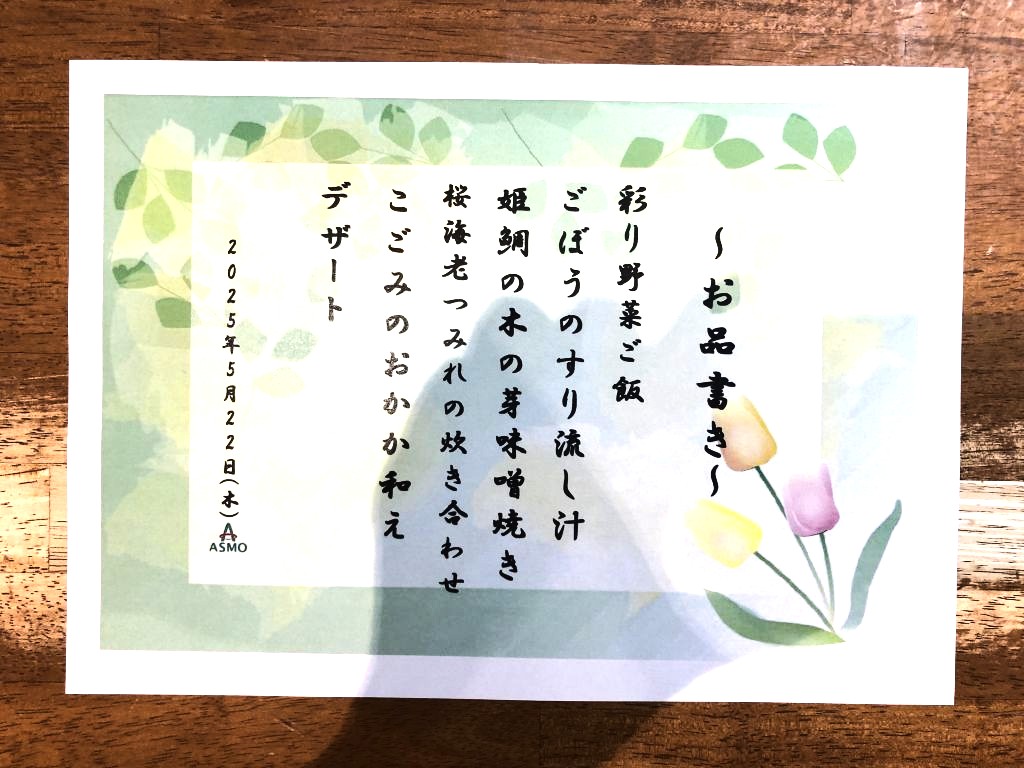 ～お品書き～
彩り野菜ご飯
ごぼうのすり流し汁
姫鯛の木の芽味噌焼き
桜海老つみれの炊き合わせ
こごみのおかか和え
デザート
2025年5月22日(木)
ASMO